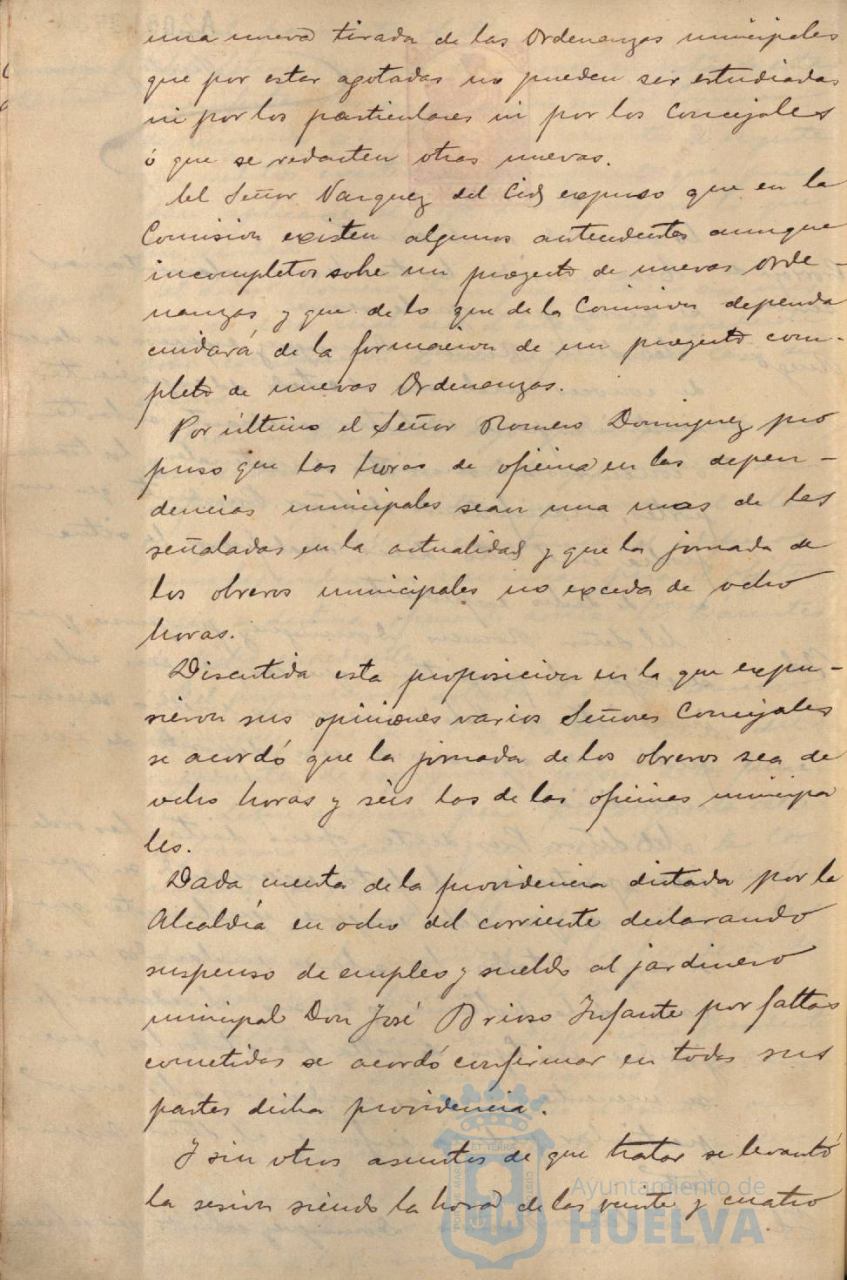 una nueva tirada de las Ordenanzas municipales
que por estar agotadas no pueden ser estudiadas
ni por los particulares ni por los Concejales
ó que se redacten otras nuevas.
El Señor Vazquez del Cid expuso que en la
Comision existen algunos antecedentes aunque
incompletos sobre un proyecto de nuevas Orde-
nanzas y que de lo que de la Comision dependa
cuidará de la formacion de un proyecto com-
pleto de nuevas Ordenanzas.
Por último el Señor Romero Dominguez pro
puso que las horas de oficina en las depen-
dencias municipales sean una mas de las
señaladas en la actualidad y que la jornada de
los obreros municipales no exceda de ocho
horas.
Discutida esta proposicion en la que expu-
sieron sus opiniones varios Señores Concejales
se acordó que la jornada de los obreros sea de
ocho horas y séis las de las oficinas municipa
les.
Dada cuenta de la providencia dictada por la
Alcaldía en ocho del corriente declarando
suspenso de empleo y sueldo al jardinero
municipal Don José Brioso Infante por faltas
cometidas se acordó confirmar en todas sus
partes dicha providencia.
Y sin otros asuntos de que tratar se levantó
la sesion siendo la hora de las veinte y cuatro
Ayuntamiento de
HUELVA